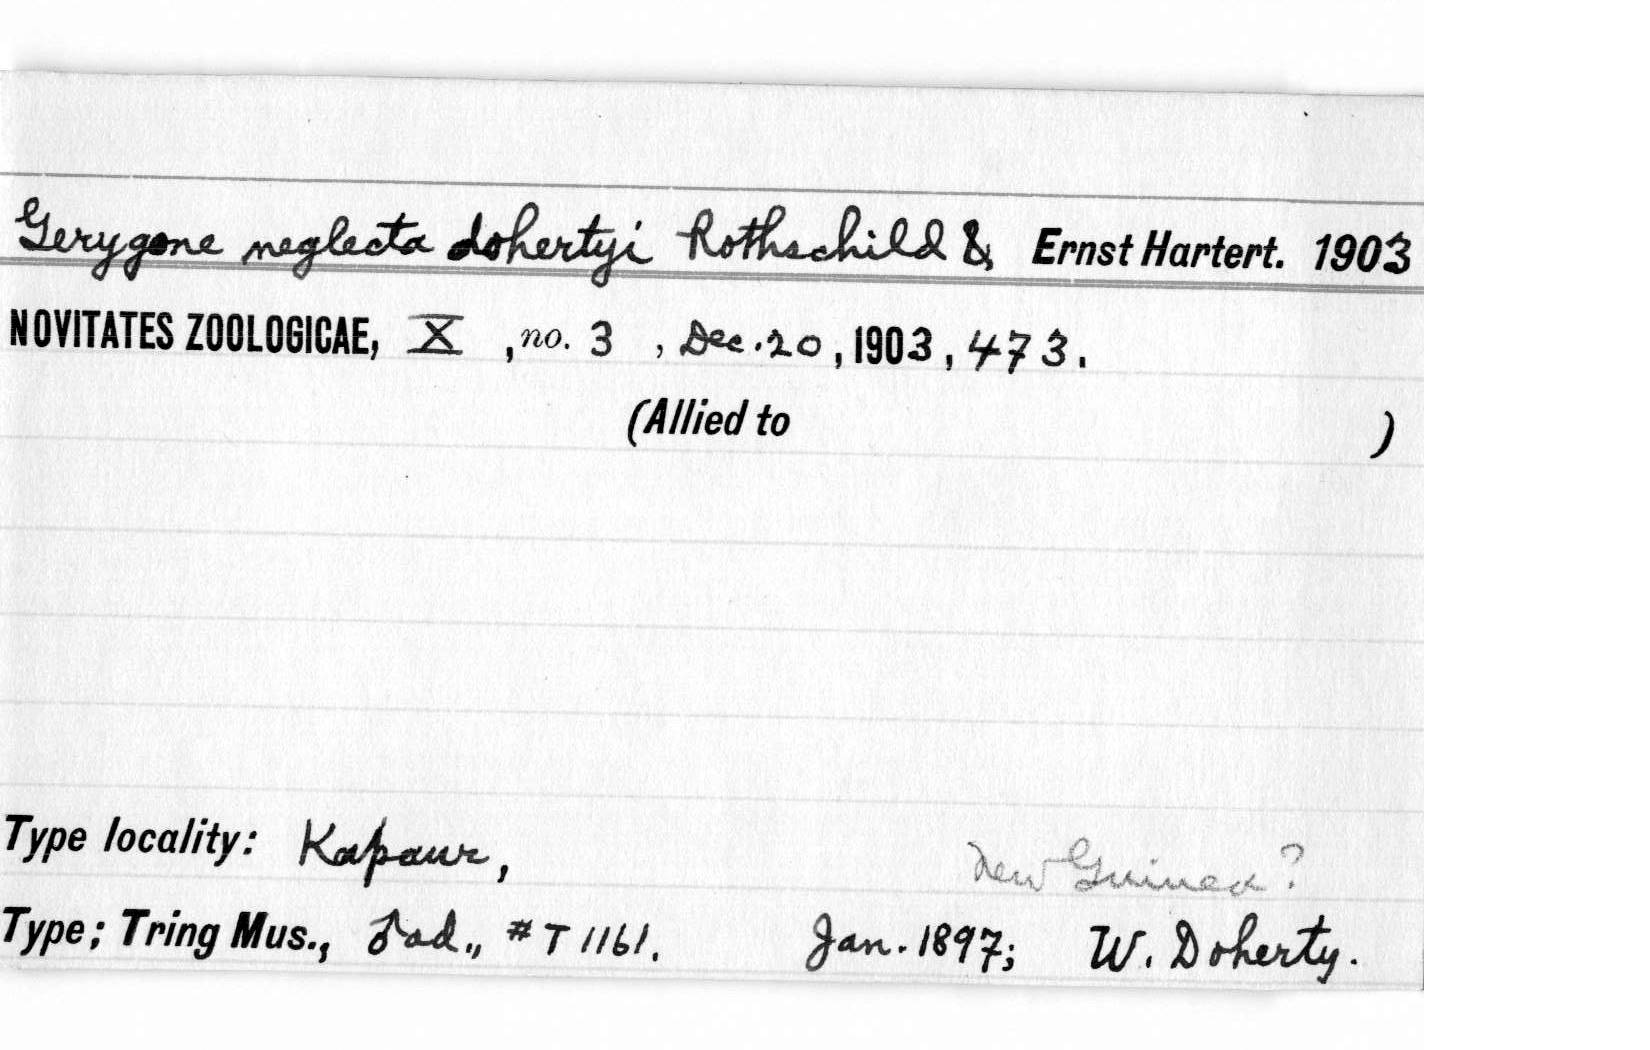 Gerygone neglecta dohertyi Rothschild & Ernst Hartert. 1903
NOVITATES ZOOLOGICAE, X , no. 3 , Dec. 20 , 1903 , 473.
(Allied to )
Type locality: Kapaur, New Guinea?
Type; Tring Mus., ♂ ad., # T 1161. Jan. 1897; W. Doherty.